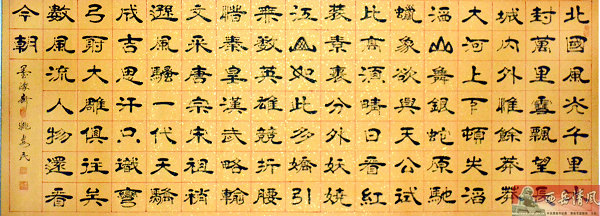 北國風光千里冰
封萬里雪飄望長
城內外惟餘莽莽
大河上下頓失滔
滔山舞銀蛇原馳
蠟象欲與天公試
比高須晴日看紅
裝素裹分外妖嬈
江山如此多嬌引
無數英雄競折腰
惜秦皇漢武略輸
文采唐宗宋祖稍
遜風騷一代天驕
成吉思汗只識彎
弓射大雕俱往矣
數風流人物還看
今朝
西岳清风